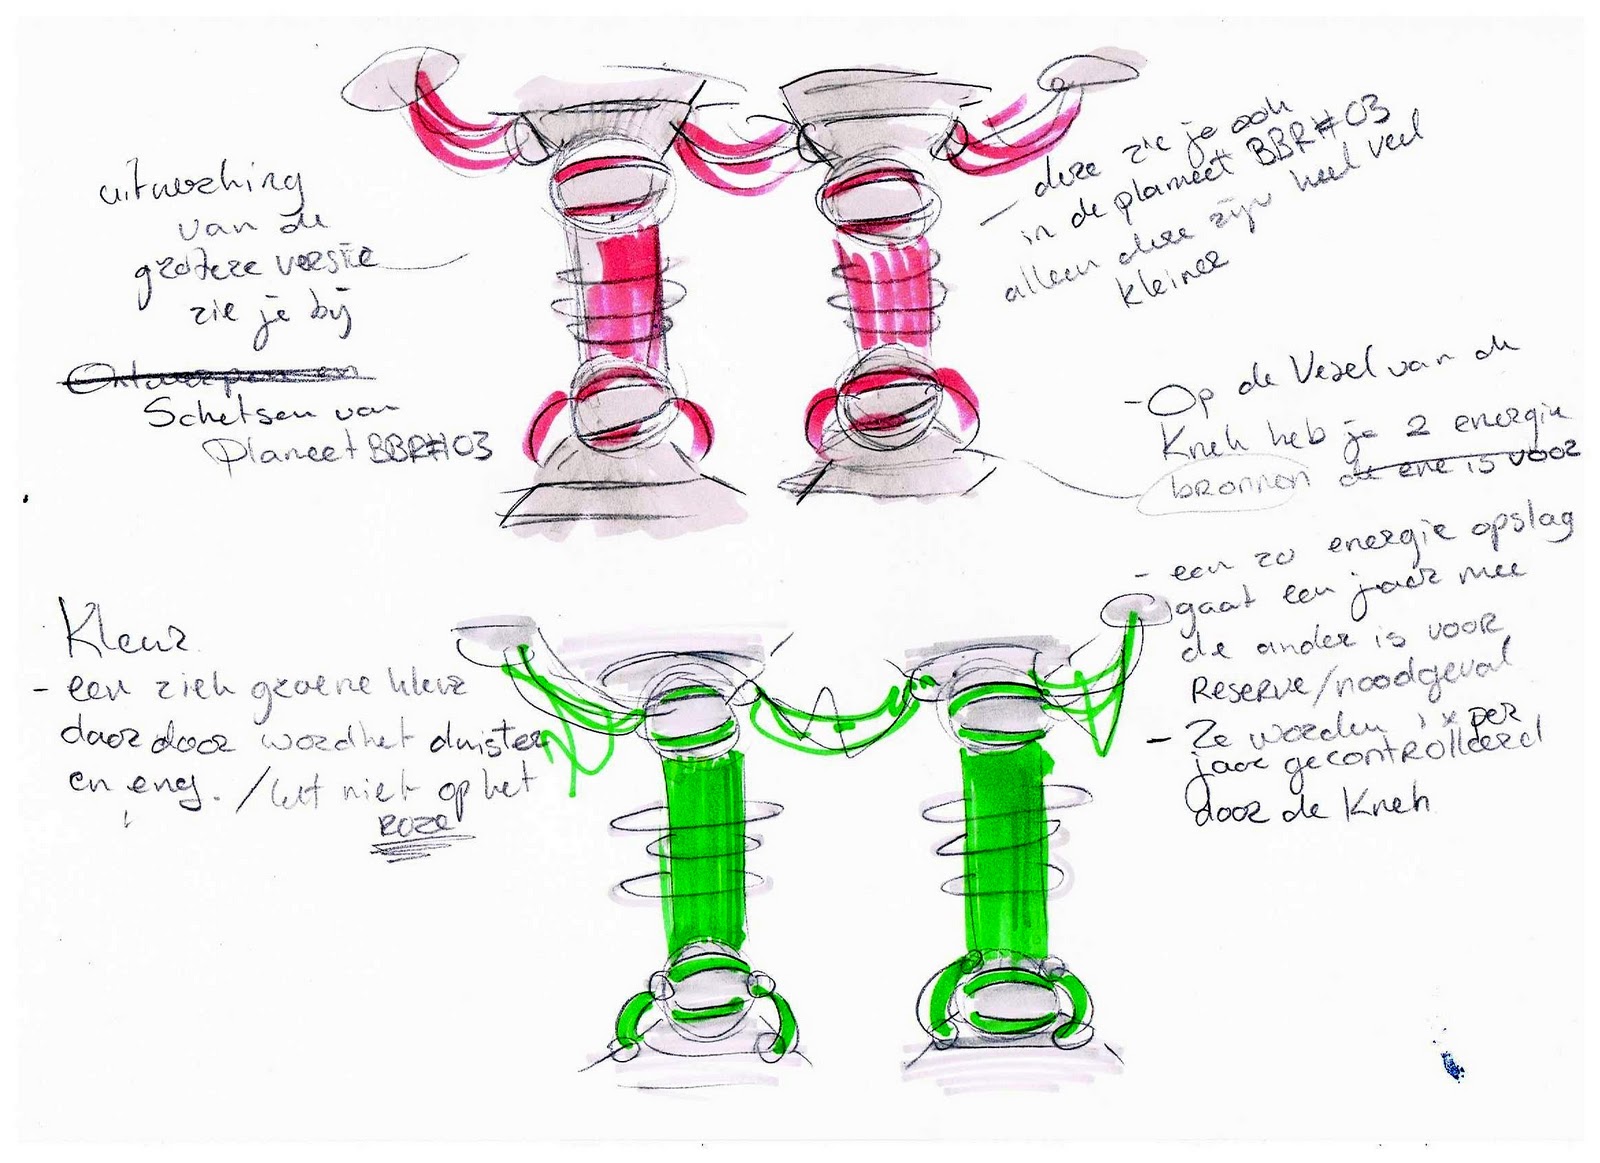 uitwerking
van de
grotere versie
zie je bij
Ontwerpen en
Schetsen van
Planeet BBR#03
- deze zie je ook
in de planeet BBR#03
alleen deze zijn heel veel
kleiner
- Op de Vezel van de
Kneh heb je 2 energie
bronnen de ene is voor
- een zo energie opslag
gaat een jaar mee
de ander is voor
Reserve/noodgeval
- Ze worden 1x per
jaar gecontrolleerd
door de Kneh
Kleur
- een ziek groene kleur
daar door wordhet duister
en eng. / let niet op het
roze